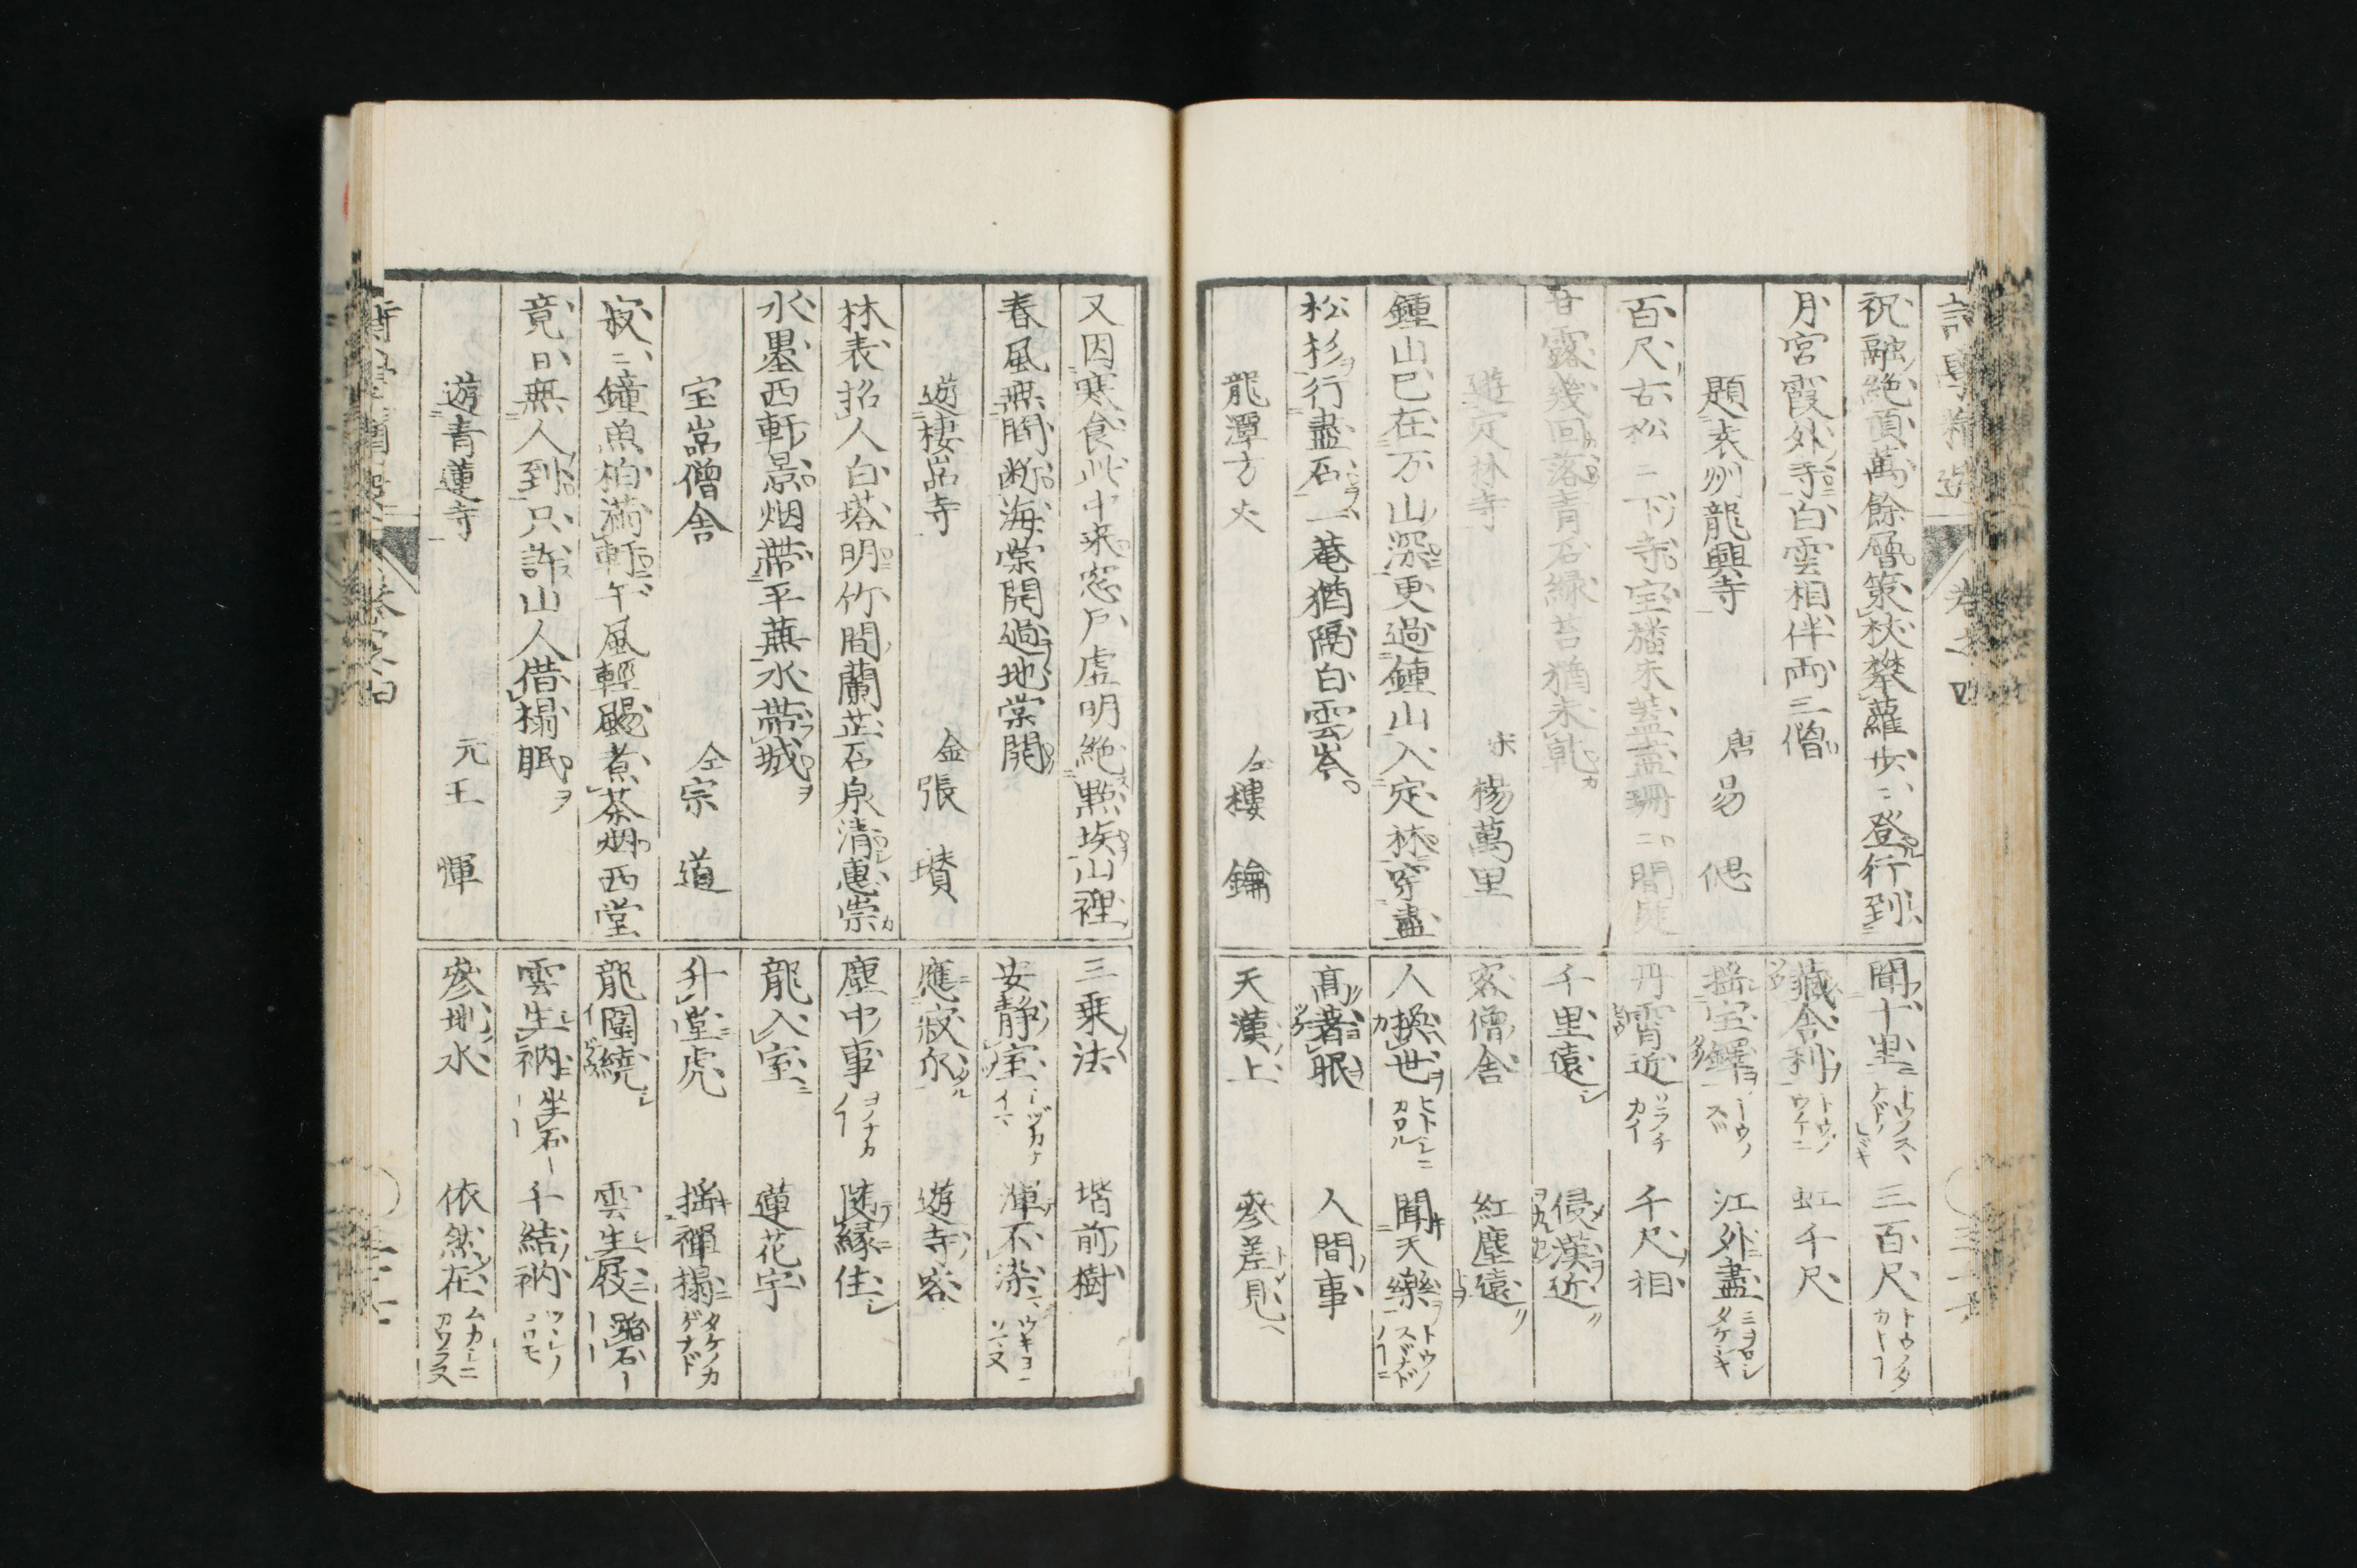 祝融絶頂萬餘層策杖攀蘿歩〻登行到
月宮霞外寺白雲相伴両三僧
題袁州龍興寺 唐 易偲
百尺古松〻下寺宝旛朱蓋盖珊〻間
甘露幾回落青石緑苔猶未乾
遊定林寺 宋 楊萬里
鍾山已在万山深更過鍾山入定林穿盡
松杉行盡石一菴猶隔白雲岑
龍潭方丈 仝 樓鑰
聞十里 三百尺
藏舎利 虹千尺
揺宝鐸 江外盡
丹霄近 千尺相
千里遠 侵漢近
客僧舎 紅塵遠
人換世 聞天樂
高著眼 人間事
天漢上 參差見
又因寒食此中来窓戸虚明絶點埃山裡
春風無間断海棠開過地棠開
遊棲嵓寺 金 張瓚
林表招人白塔明竹間蘭芷石泉清惠崇
水墨西軒景烟帯平蕪水帯城
宝嵓僧舎 仝 宗道
寂〻鐘魚柏満軒午風輕颺煮茶烟西堂
竟日無人到只許山人借榻眠
遊青蓮寺 元 王惲
三乗法 堦前樹
安静室 渾不染
應寂尓 遊寺客
塵中事 随縁住
龍入室 蓮花宇
升堂虎 揺禪榻
龍圍繞 雲生屐
雲生衲 千結衲
參地水 依然在